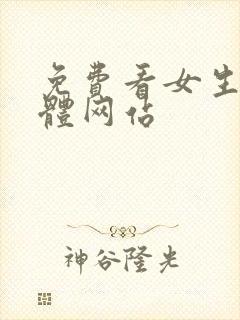 免費看女生
體网佔
神谷隆光